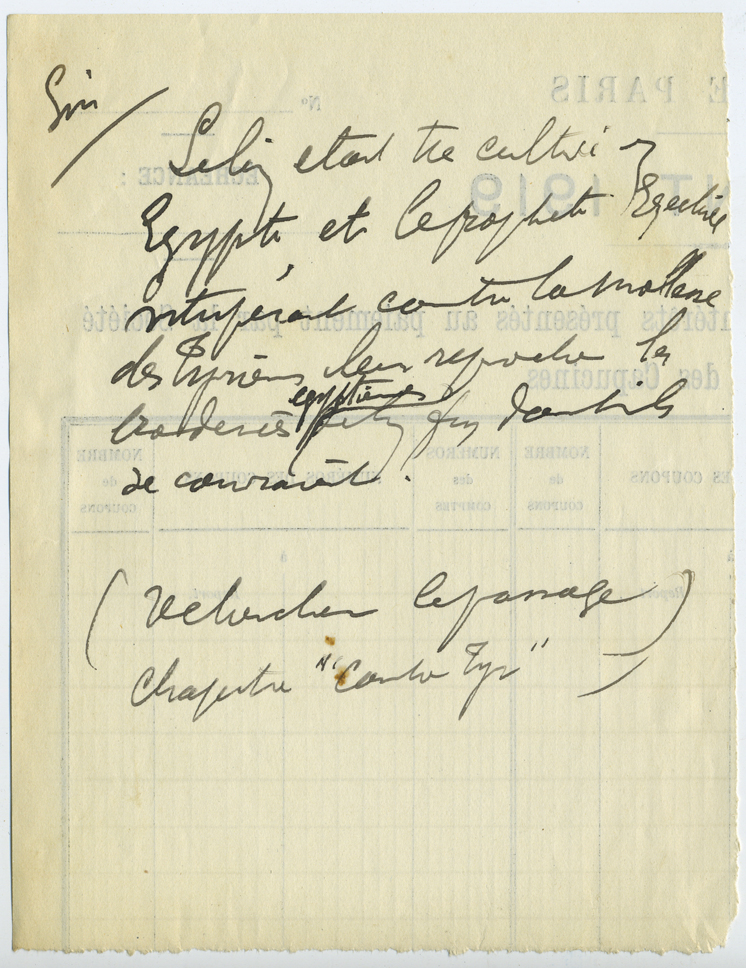 Lin
Le lin était très cultivé en
Egypte et le prophète Ezechiel
vitupérant contre la mollesse
des Tyriens leur reproche les
broderies egyptiennes fin dont ils
se couvraient.
(rechercher le passage)
chapitre "contre Tyr"
E PARIS
No
ÉCHÉANCE :
NT 1919
intérêts présentés au paiement par la Société
des Capucines
NOMBRE
de
COUPONS
NUMÉROS DES COUPONS
NUMÉROS
des
COMPTES
NOMBRE
de
COUPONS
ES COUPONS
à
à
Report
Report